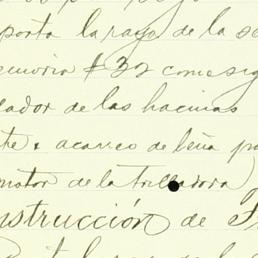 porta la raya de la se
emoria #32 como sig
ador de las hacinas
te. acarreo de leña po
motor de la trilladora)
nstrucción de